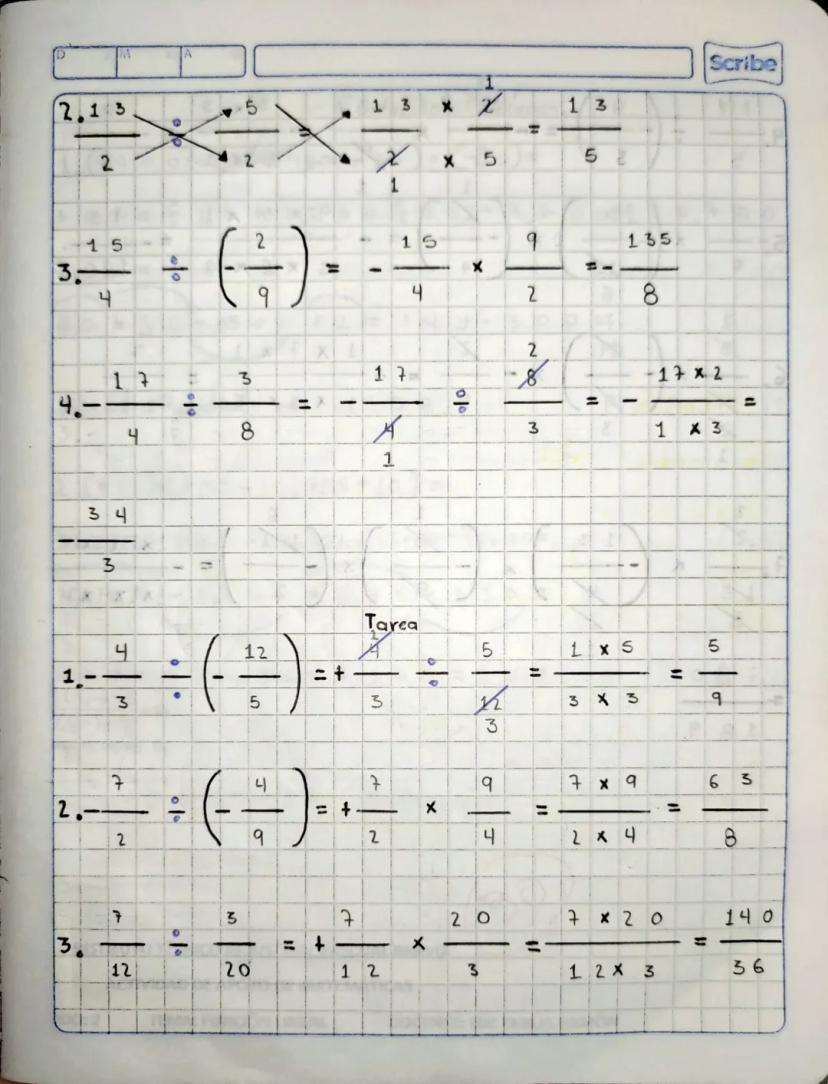 D M A Scribe
2. 13/2 ÷ 5/2 = 13/2 x 2/5 = 13/5
1
1
3. 15/4 ÷ (-2/9) = - 15/4 x 9/2 = - 135/8
4. - 17/4 ÷ 3/8 = - 17/4 ÷ 8/3 = - 17 x 2/1 x 3 =
2
1
- 34/3
Tarea
1. - 4/3 ÷ (- 12/5) = + 4/3 ÷ 5/12 = 1 x 5/3 x 3 = 5/9
3
2. - 7/2 ÷ (- 4/9) = + 7/2 x 9/4 = 7 x 9/2 x 4 = 63/8
3. 7/12 ÷ 3/20 = + 7/12 x 20/3 = 7 x 20/12 x 3 = 140/36